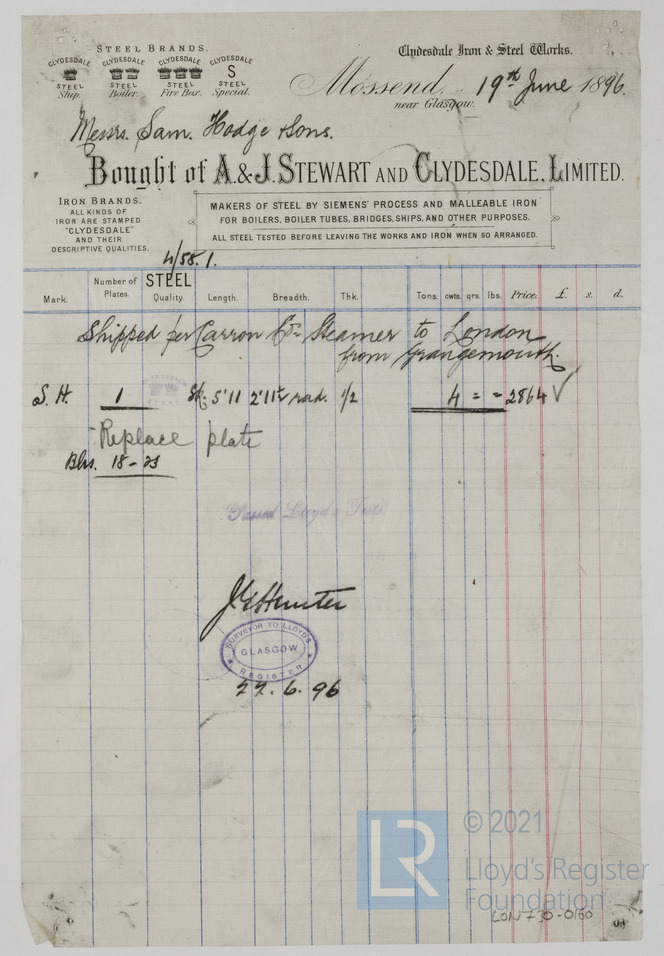 STEEL BRANDS.
CLYDESDALE CLYDESDALE CLYDESDALE CLYDESDALE
S
STEEL STEEL STEEL STEEL
Ship. Boiler. Fire Box. Special.
Clydesdale Iron & Steel Works.
Mossend, 19th June 1896.
near Glasgow.
Messrs. Sam. Hodge & Sons.
Bought of A. & J. STEWART AND CLYDESDALE, LIMITED.
IRON BRANDS.
ALL KINDS OF
IRON ARE STAMPED
"CLYDESDALE"
AND THEIR
DESCRIPTIVE QUALITIES.
MAKERS OF STEEL BY SIEMENS' PROCESS AND MALLEABLE IRON
FOR BOILERS, BOILER TUBES, BRIDGES, SHIPS, AND OTHER PURPOSES.
ALL STEEL TESTED BEFORE LEAVING THE WORKS AND IRON WHEN SO ARRANGED.
4/58.1.
Mark. Number of Plates. STEEL Quality. Length. Breadth. Thk. Tons. cwts. qrs. lbs. Price. £. s. d.
Shipped per Carron Co Steamer to London
from Grangemouth.
S. H. 1 5'11 2'11½ rad. 1/2 4 = = 2864 ✓
Replace plate
Blrs. 18-23
Passed Lloyd's Tests.
J Hunter
SURVEYOR TO LLOYD'S
GLASGOW
REGISTER
22.6.96
LR
© 2021
Lloyd's Register
Foundation
LON730-0160